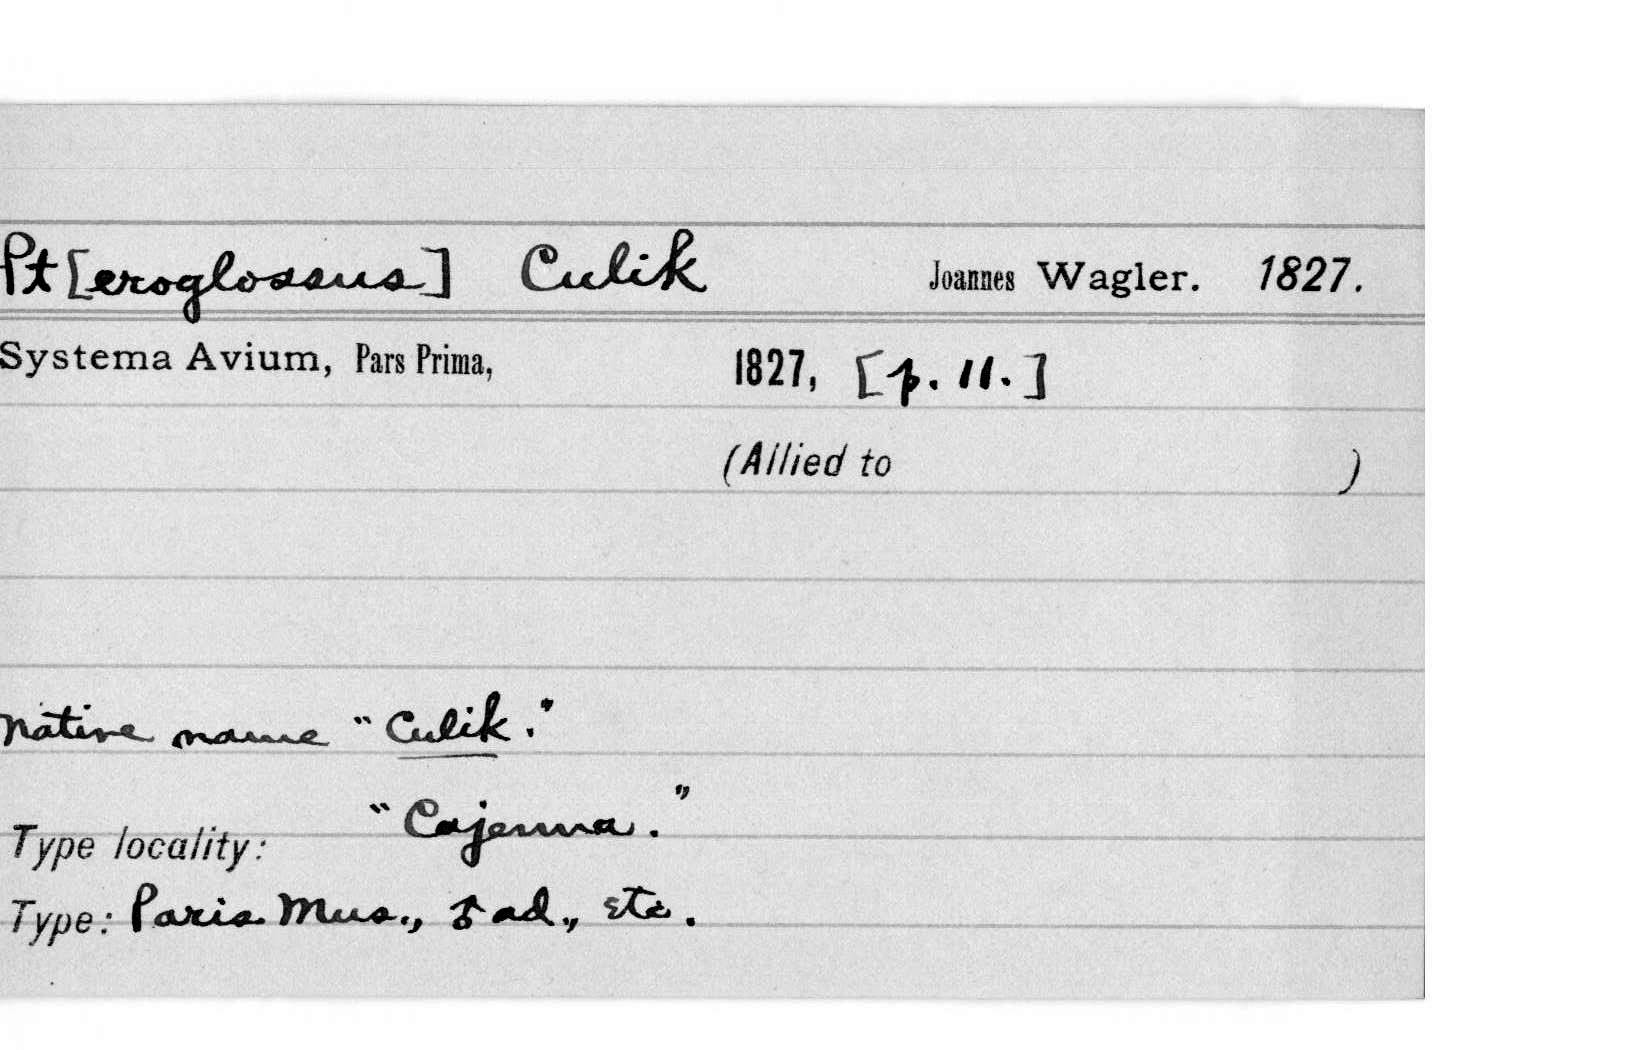 Pt[eroglossus] Culik Joannes Wagler. 1827.
Systema Avium, Pars Prima, 1827, [p. 11.]
(Allied to )
Native name "Culik."
Type locality: "Cajenna."
Type: Paris Mus., ♂ ad., etc.